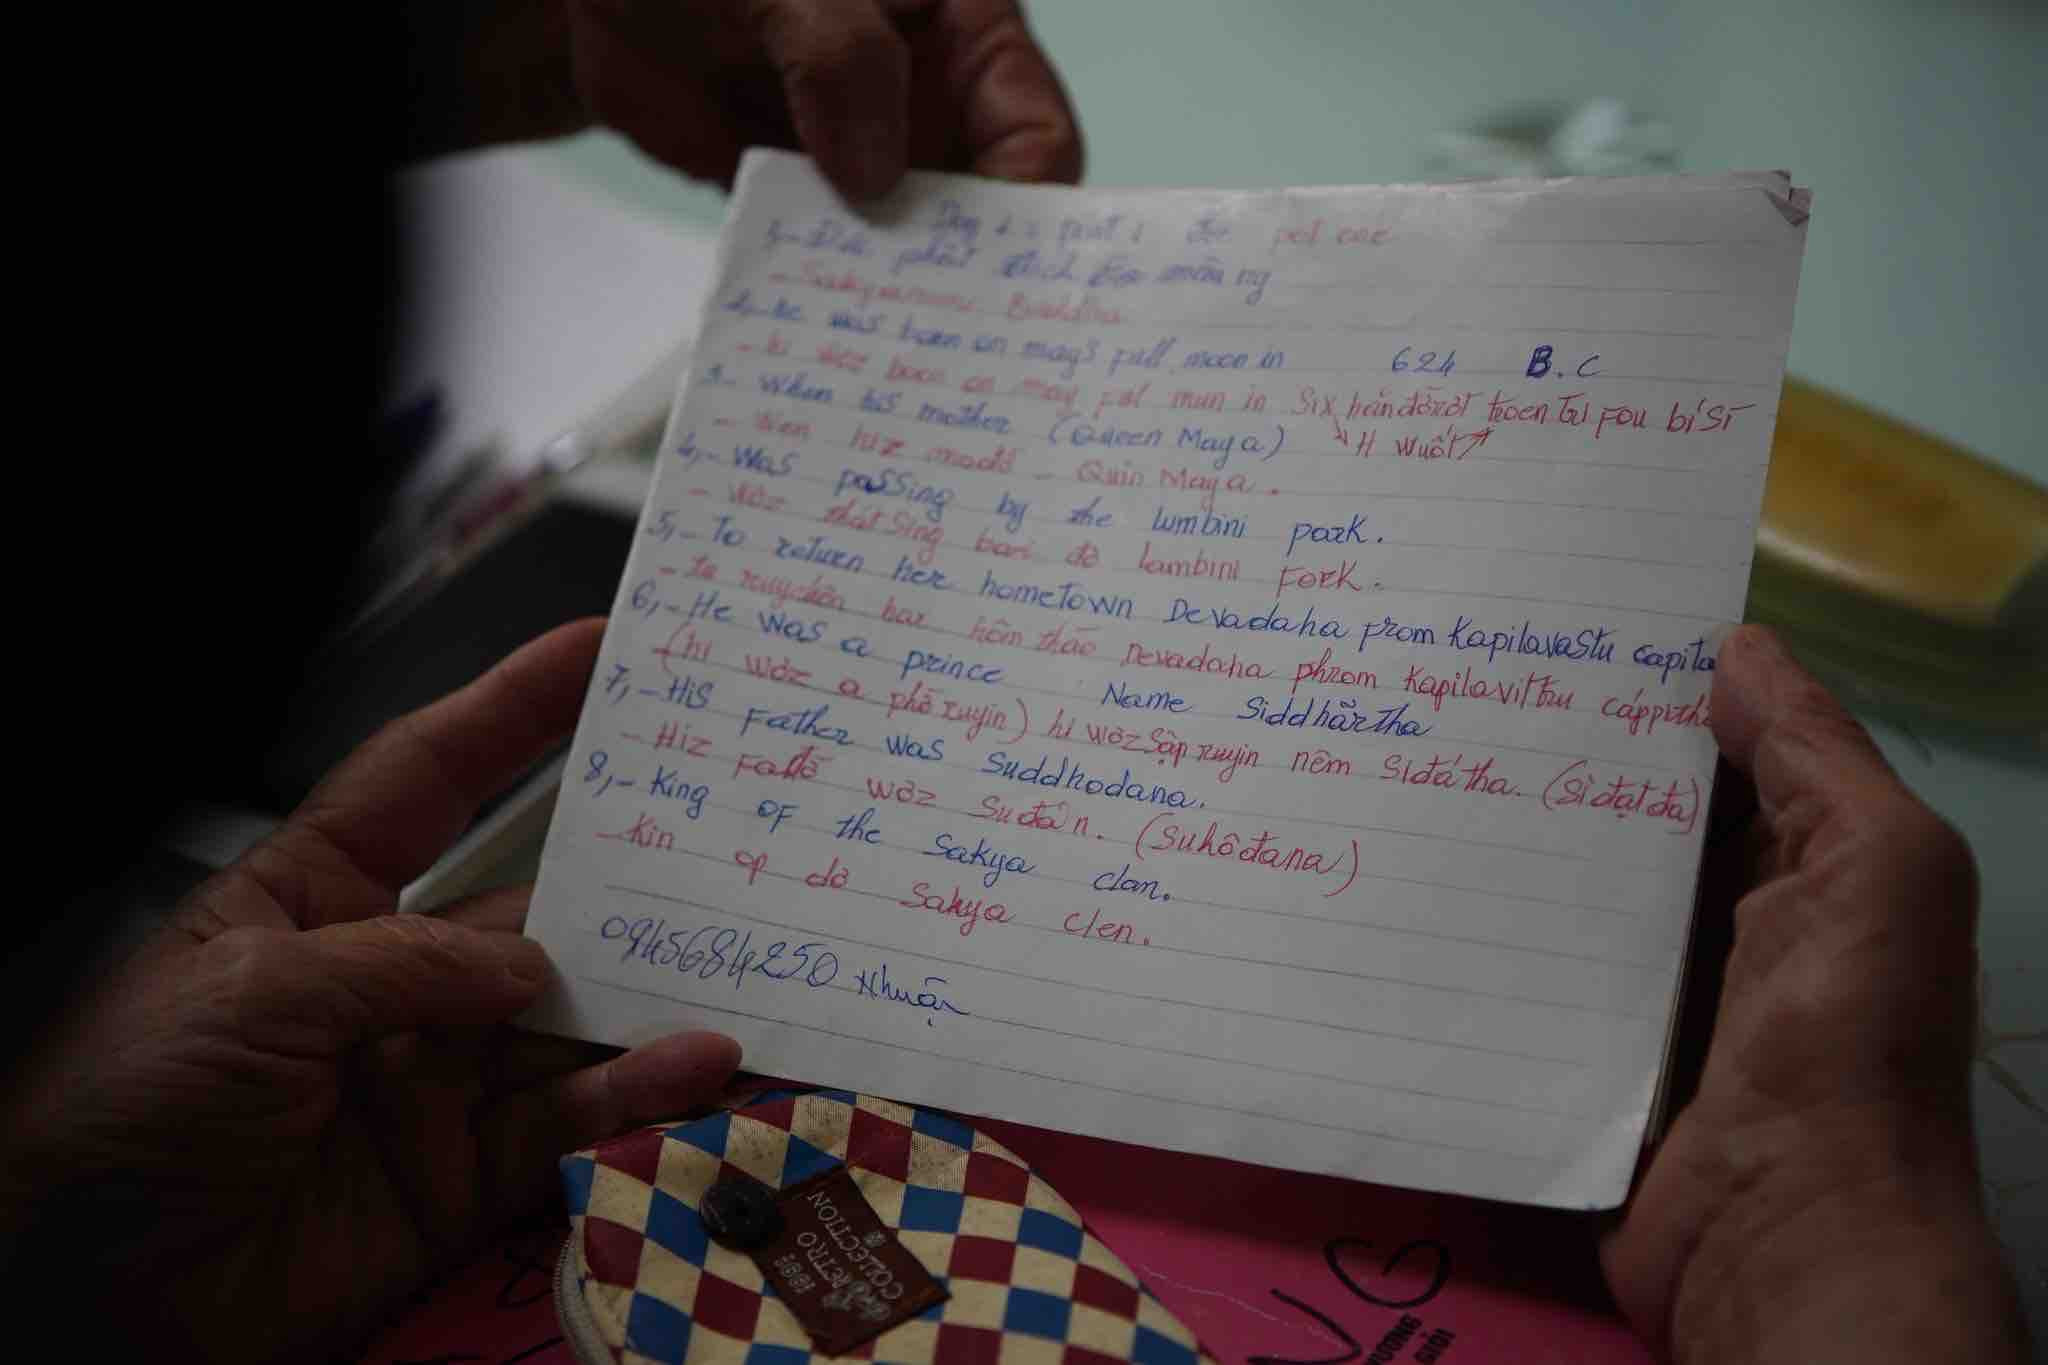 pót
1,- phật thích
- Sakyamuni Buddha
2,- He was born on may's full moon in 624 B.C
- hi woz on may ful mun in Six hânđờrớt toen tu Fou bí Sĩ
H Wuốt
3- When his mother (Queen Maya)
- Wen hiz modờ - Quin Maya.
4,- Was passing by the lumbini park.
- Woz thátsing bai đờ lambini Fork.
5,- To return her hometown Devadaha from Kapilavastu capita
- tu hôm thảo Devadaha phrom Kapilavittu
6,- He was a prince Name Siddhãrtha
- (hi wơz a phờ ruyin) hi wơz Sập ruyin nêm Siđátha. (Sì đạt đa)
7,- His Father was Suddhodana.
- Hiz Fadờ wơz Suđán. (Suhôđana)
8,- King OF the Sakya clan.
- Kin op dờ Sakya Clen.
0945684250 Nhuận
1998
RETRO
COLLECTION
VG
GIỎI